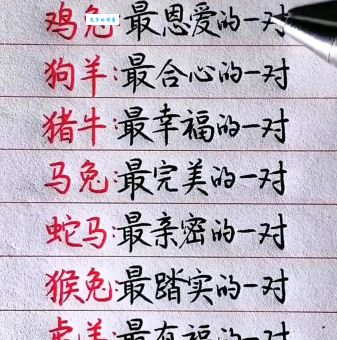 鸡兔:最恩爱的一对
狗羊:最合心的一对
猪牛:最幸福的一对
马兔:最完美的一对
蛇马:最亲密的一对
猴兔:最踏实的一对
虎羊:最有福的一对